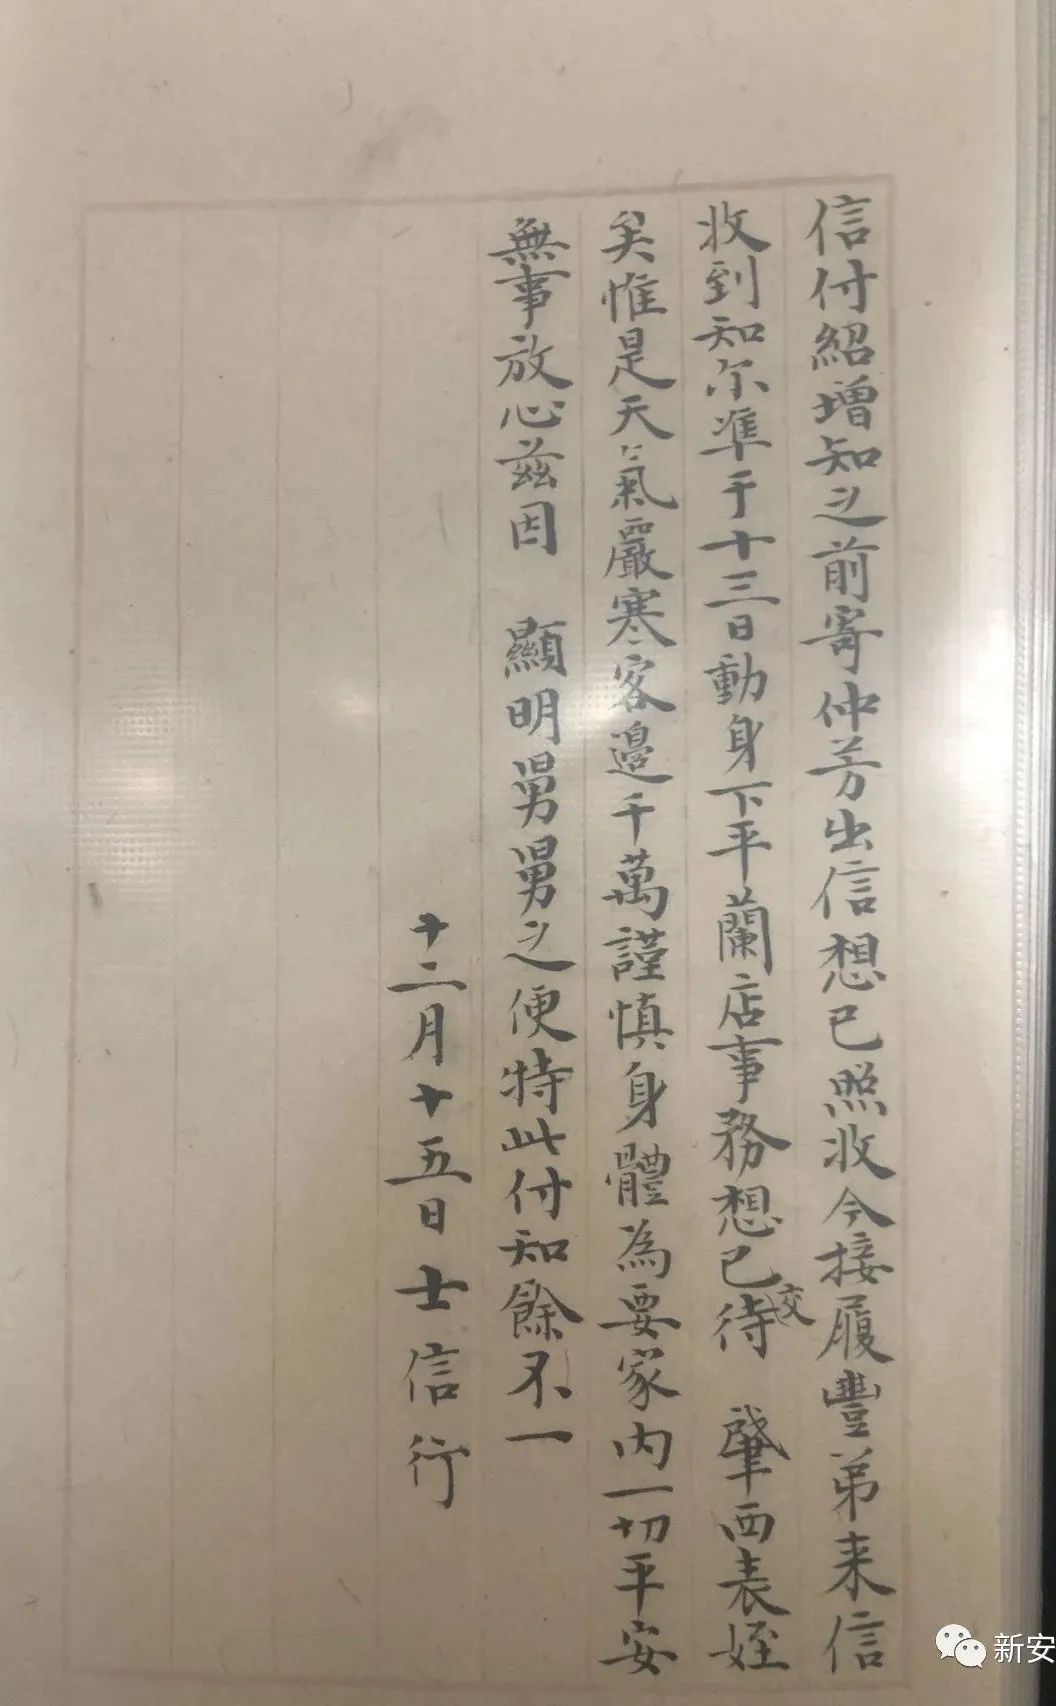 信付紹增知之前寄仲芳出信想已照收今接履豐弟来信
收到知尔準于十三日動身下平蘭店事務想已待交 肇西表姪
矣惟是天氣嚴寒客邊千萬謹慎身體為要家内一切平安
無事放心兹因 顯明舅舅之便特此付知餘不一
十二月十五日士信行
新安